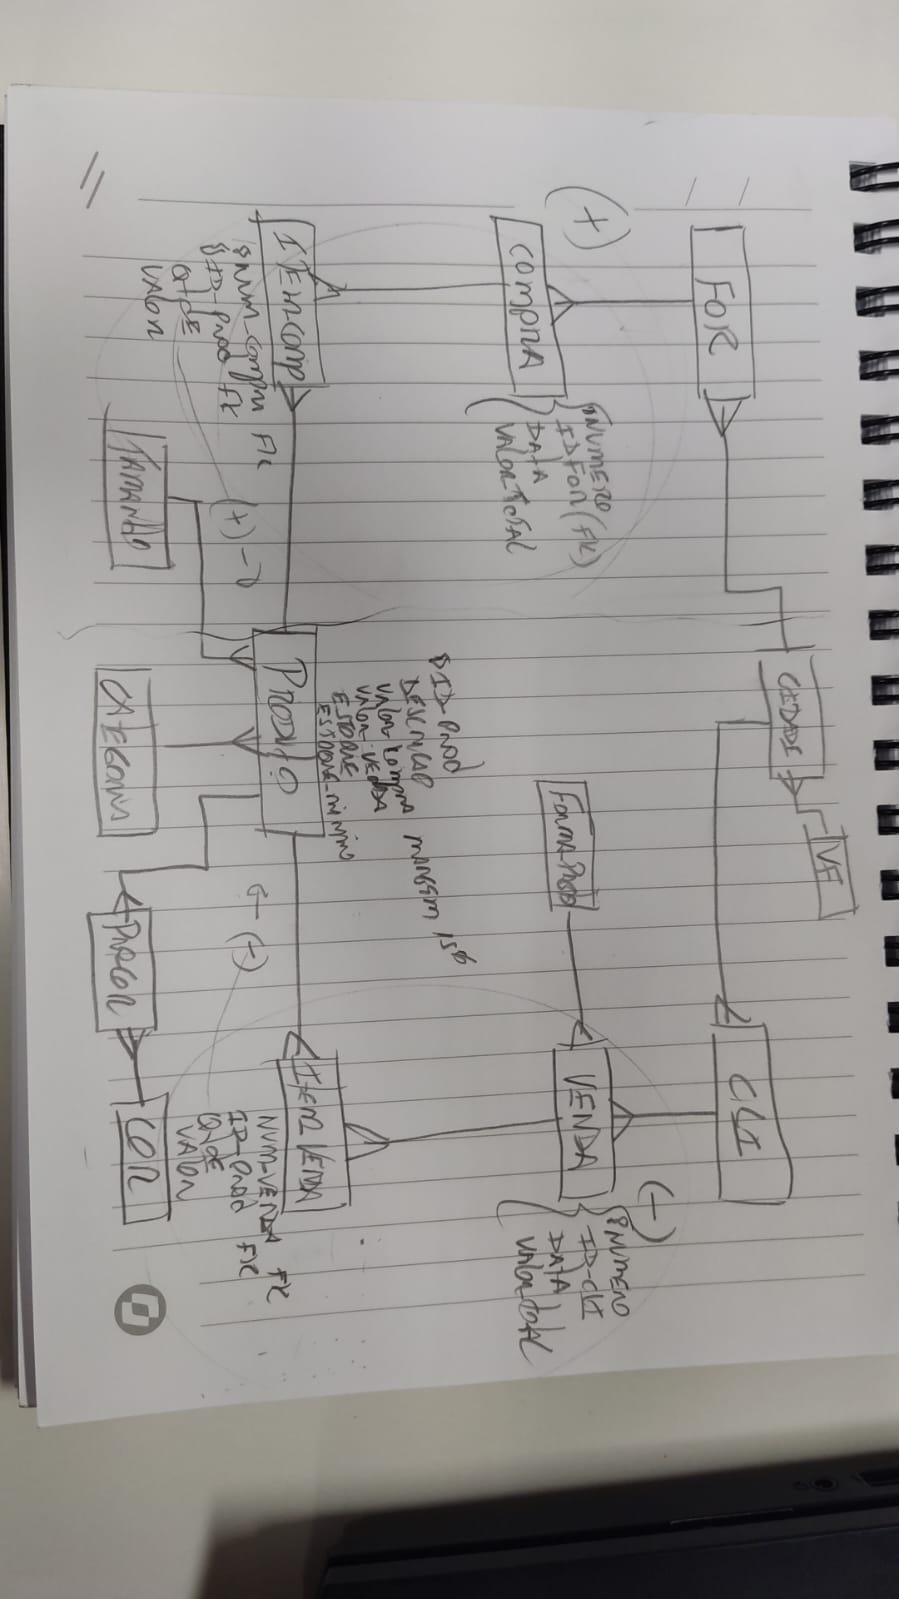 CIDADE
UF
FOR
CLI
(+)
(-)
NUMERO
ID FOR (FK)
DATA
VALOR TOTAL
COMPRA
FORMA_PAGTO
VENDA
NUMERO
ID-CLI
DATA
VALOR_TOTAL
ID-PROD
DESCRICAO
VALOR COMPRA MARGEM 15%
VALOR VENDA
ESTOQUE
ESTOQUE_MINIMO
ITEMCOMP
PRODUTO
ITEM VENDA
NUM_COMPRA FK
ID-PROD FK
QTDE
VALOR
(+)
(-)
NUM-VENDA FK
ID-PROD FK
QTDE
VALOR
TAMANHO
CATEGORIA
PROCOR
COR